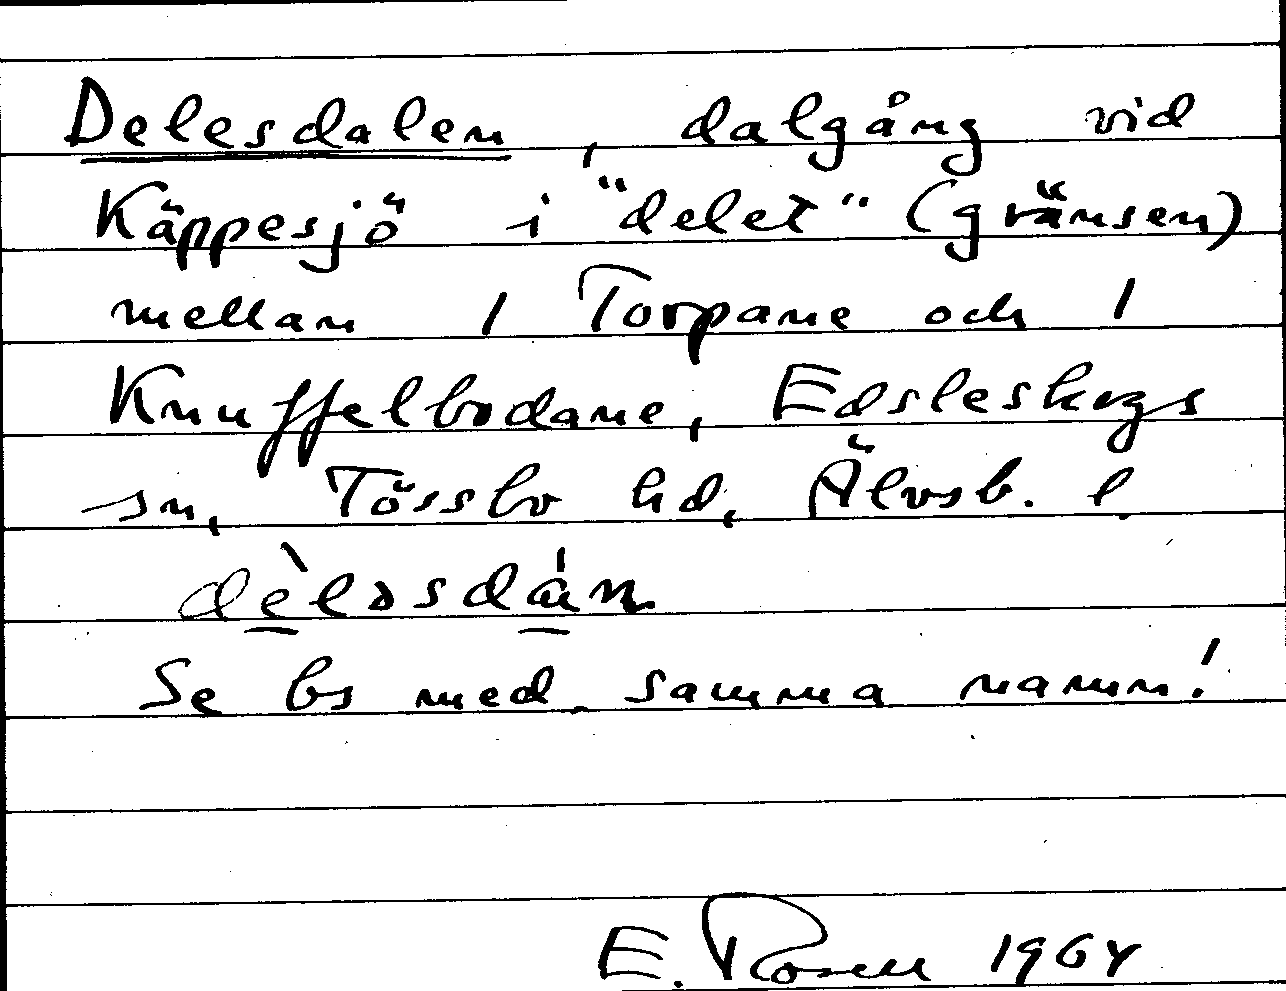 Delesdalen, dalgång vid
Käppesjö i "delet" (gränsen)
mellan 1 Torpane och 1
Knuffelbodane, Edsleskogs
sn, Tössbo hd, Älvsb. l.
dèləsdán
Se bs med samma namn!
E. Rosell 1964